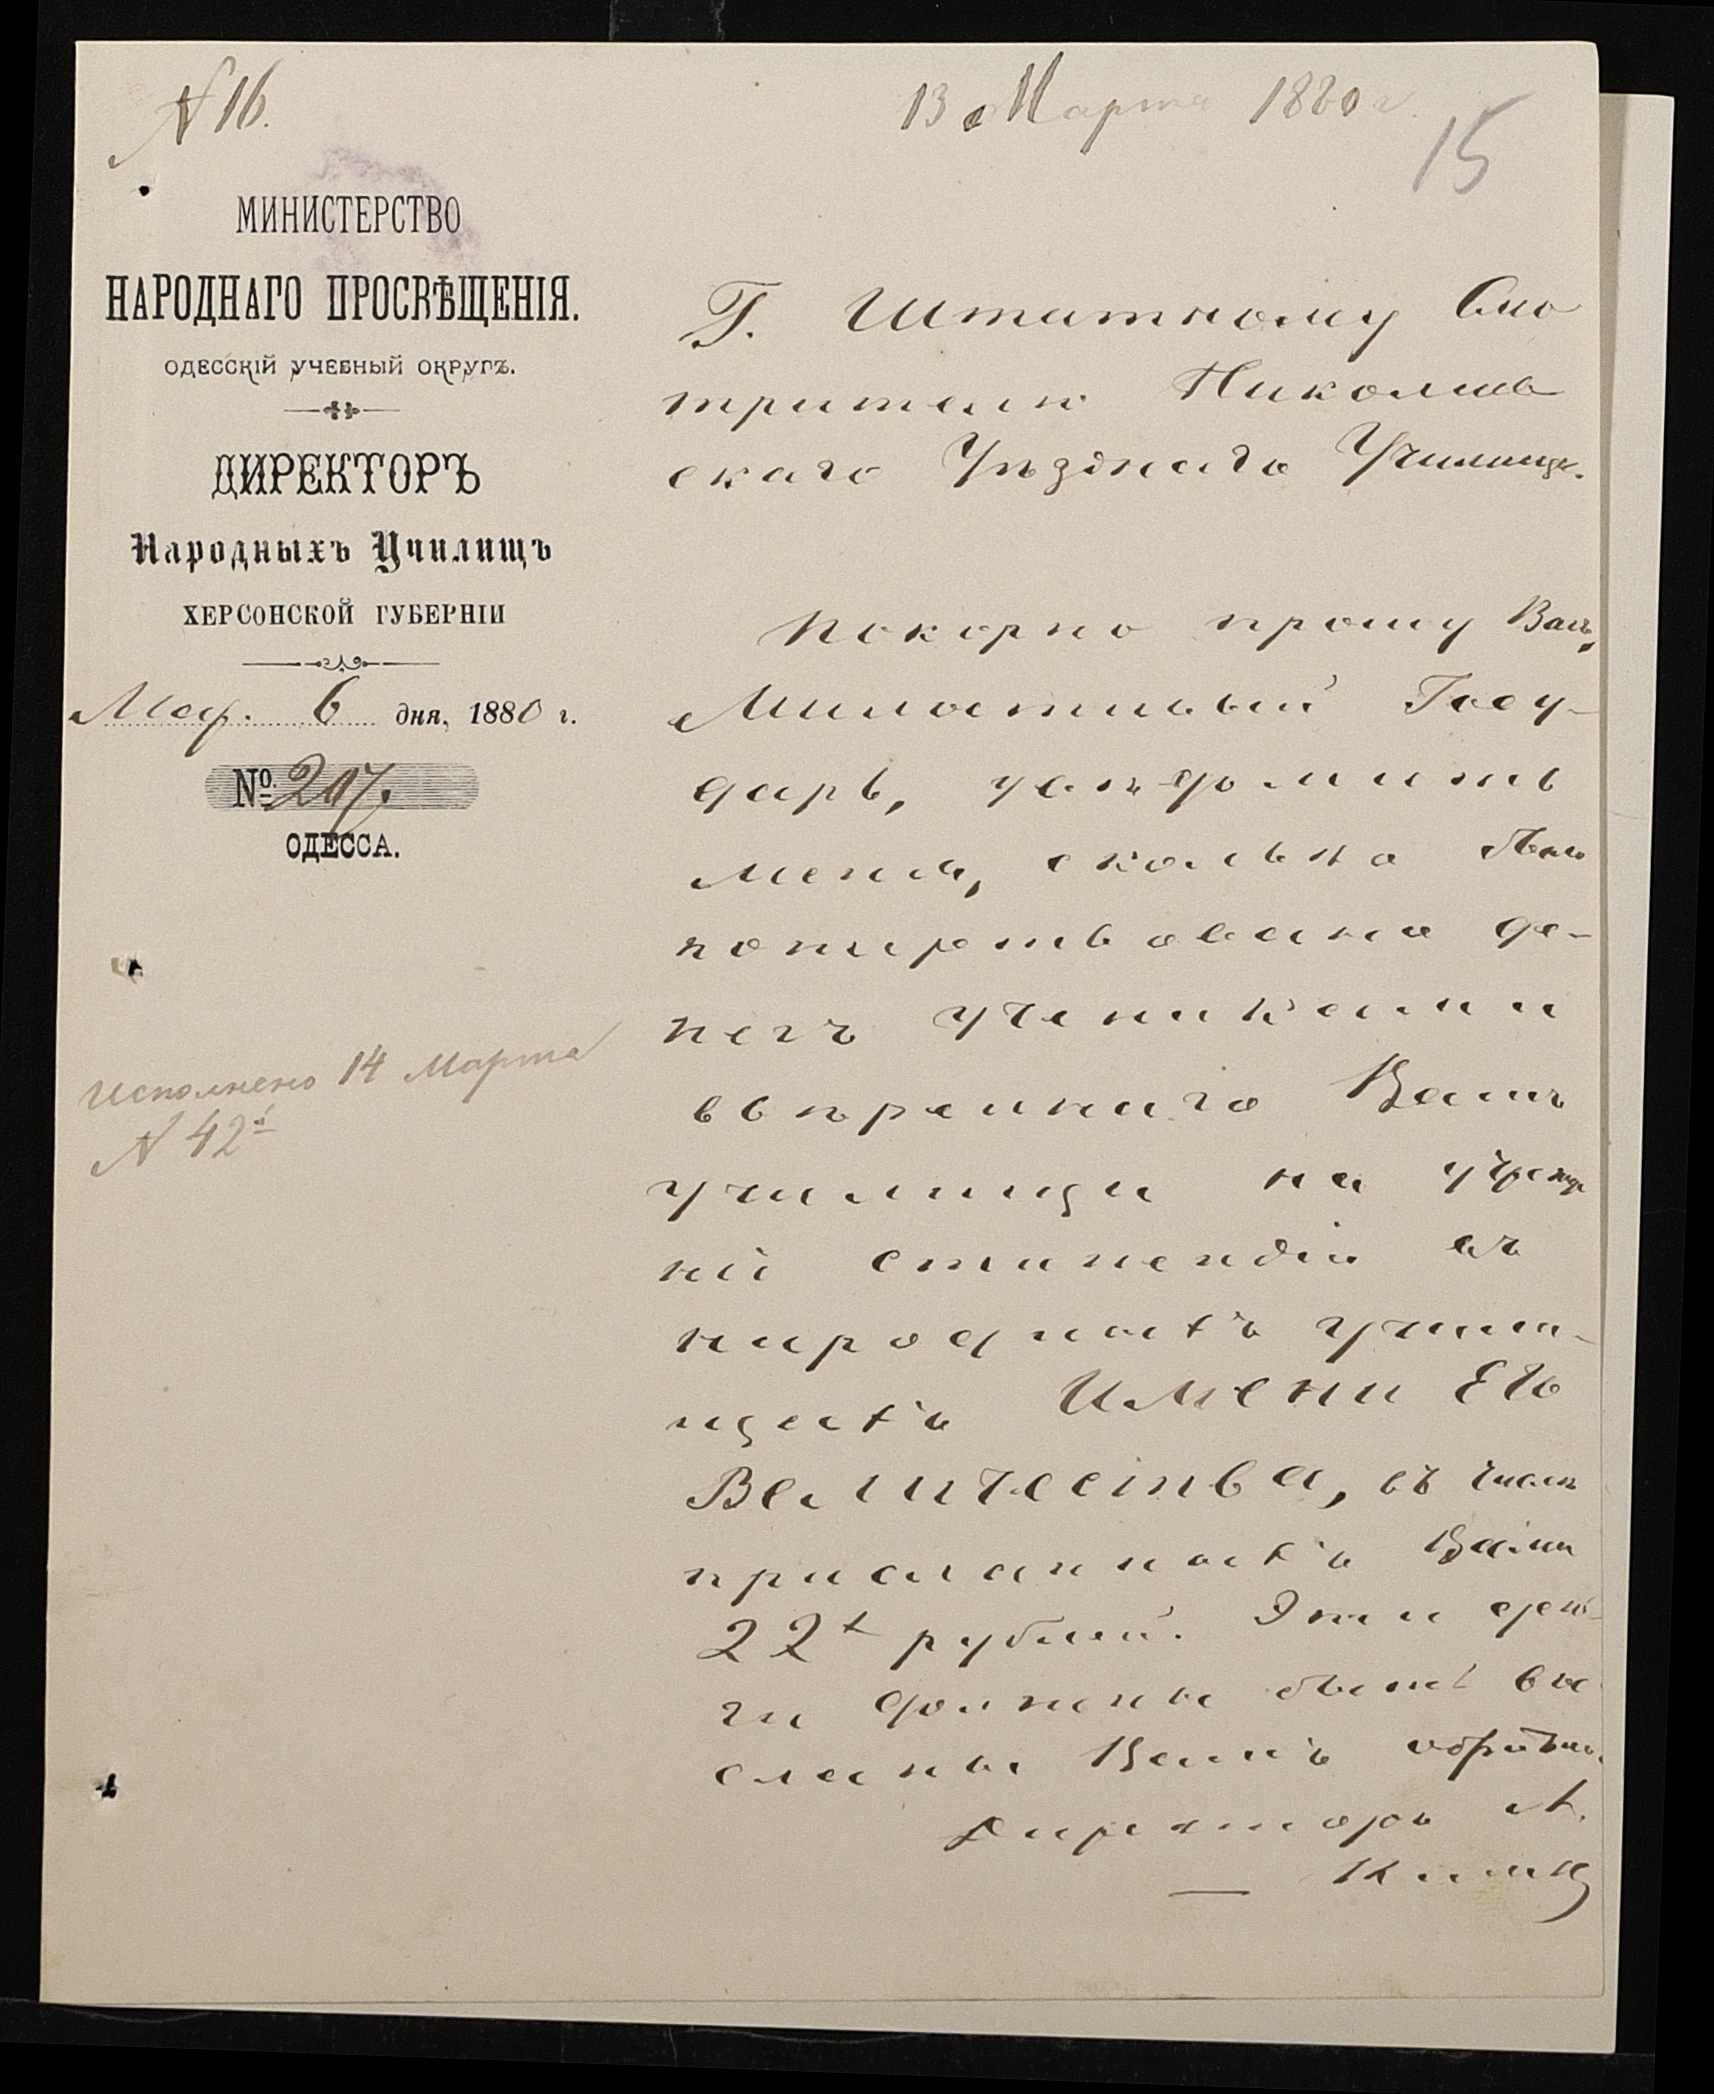 N 16.
13 Марта 1880 г.
15
МИНИСТЕРСТВО
НАРОДНАГО ПРОСВѢЩЕНІЯ.
ОДЕССКІЙ УЧЕБНЫЙ ОКРУГЪ.
ДИРЕКТОРЪ
Народныхъ Училищъ
ХЕРСОНСКОЙ ГУБЕРНІИ
Мар. 6 дня, 1880 г.
№ 217.
ОДЕССА.
Исполнено 14 Марта
N 42й
Г. Штатному Смо
трителю Николаев
скаго Уѣзднаго Училища.
Покорно прошу Васъ,
Милостивый Госу-
дарь, увѣдомить
меня, сколько было
пожертвовано де-
негъ учениками
ввѣреннаго Вамъ
училища на учрежде
ніе стипендіи въ
народныхъ учили-
щахъ Имени Его
Величества, въ числѣ
присланныхъ Вами
22х рублей. Эти день-
ги должны быть вы
сланы Вамъ обратно.
Директоръ А.